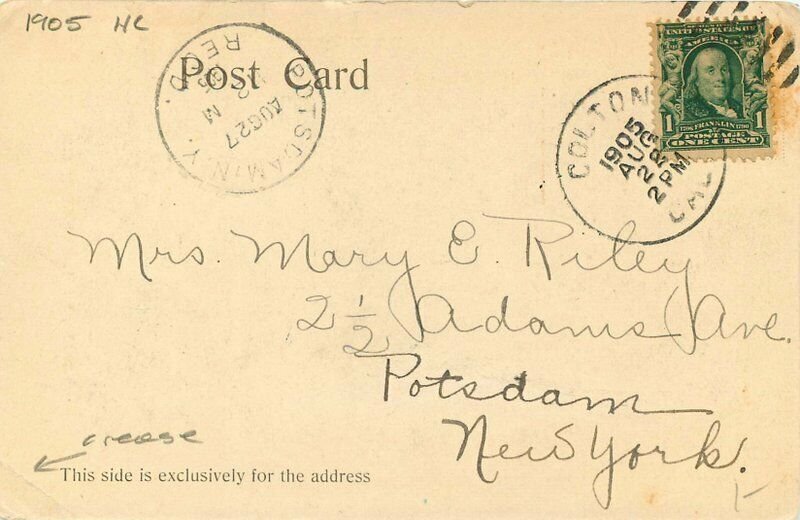 1905 HC
Post Card
POTSDAM, N.Y.
AUG 27
M
REC'D.
COLTON
1905
AUG
2 PM
CAL
UNITED STATES OF
AMERICA
1 FRANKLIN 1
ONE CENT
Mrs. Mary E. Riley
2 1/2 Adams Ave.
Potsdam
New York.
crease
This side is exclusively for the address